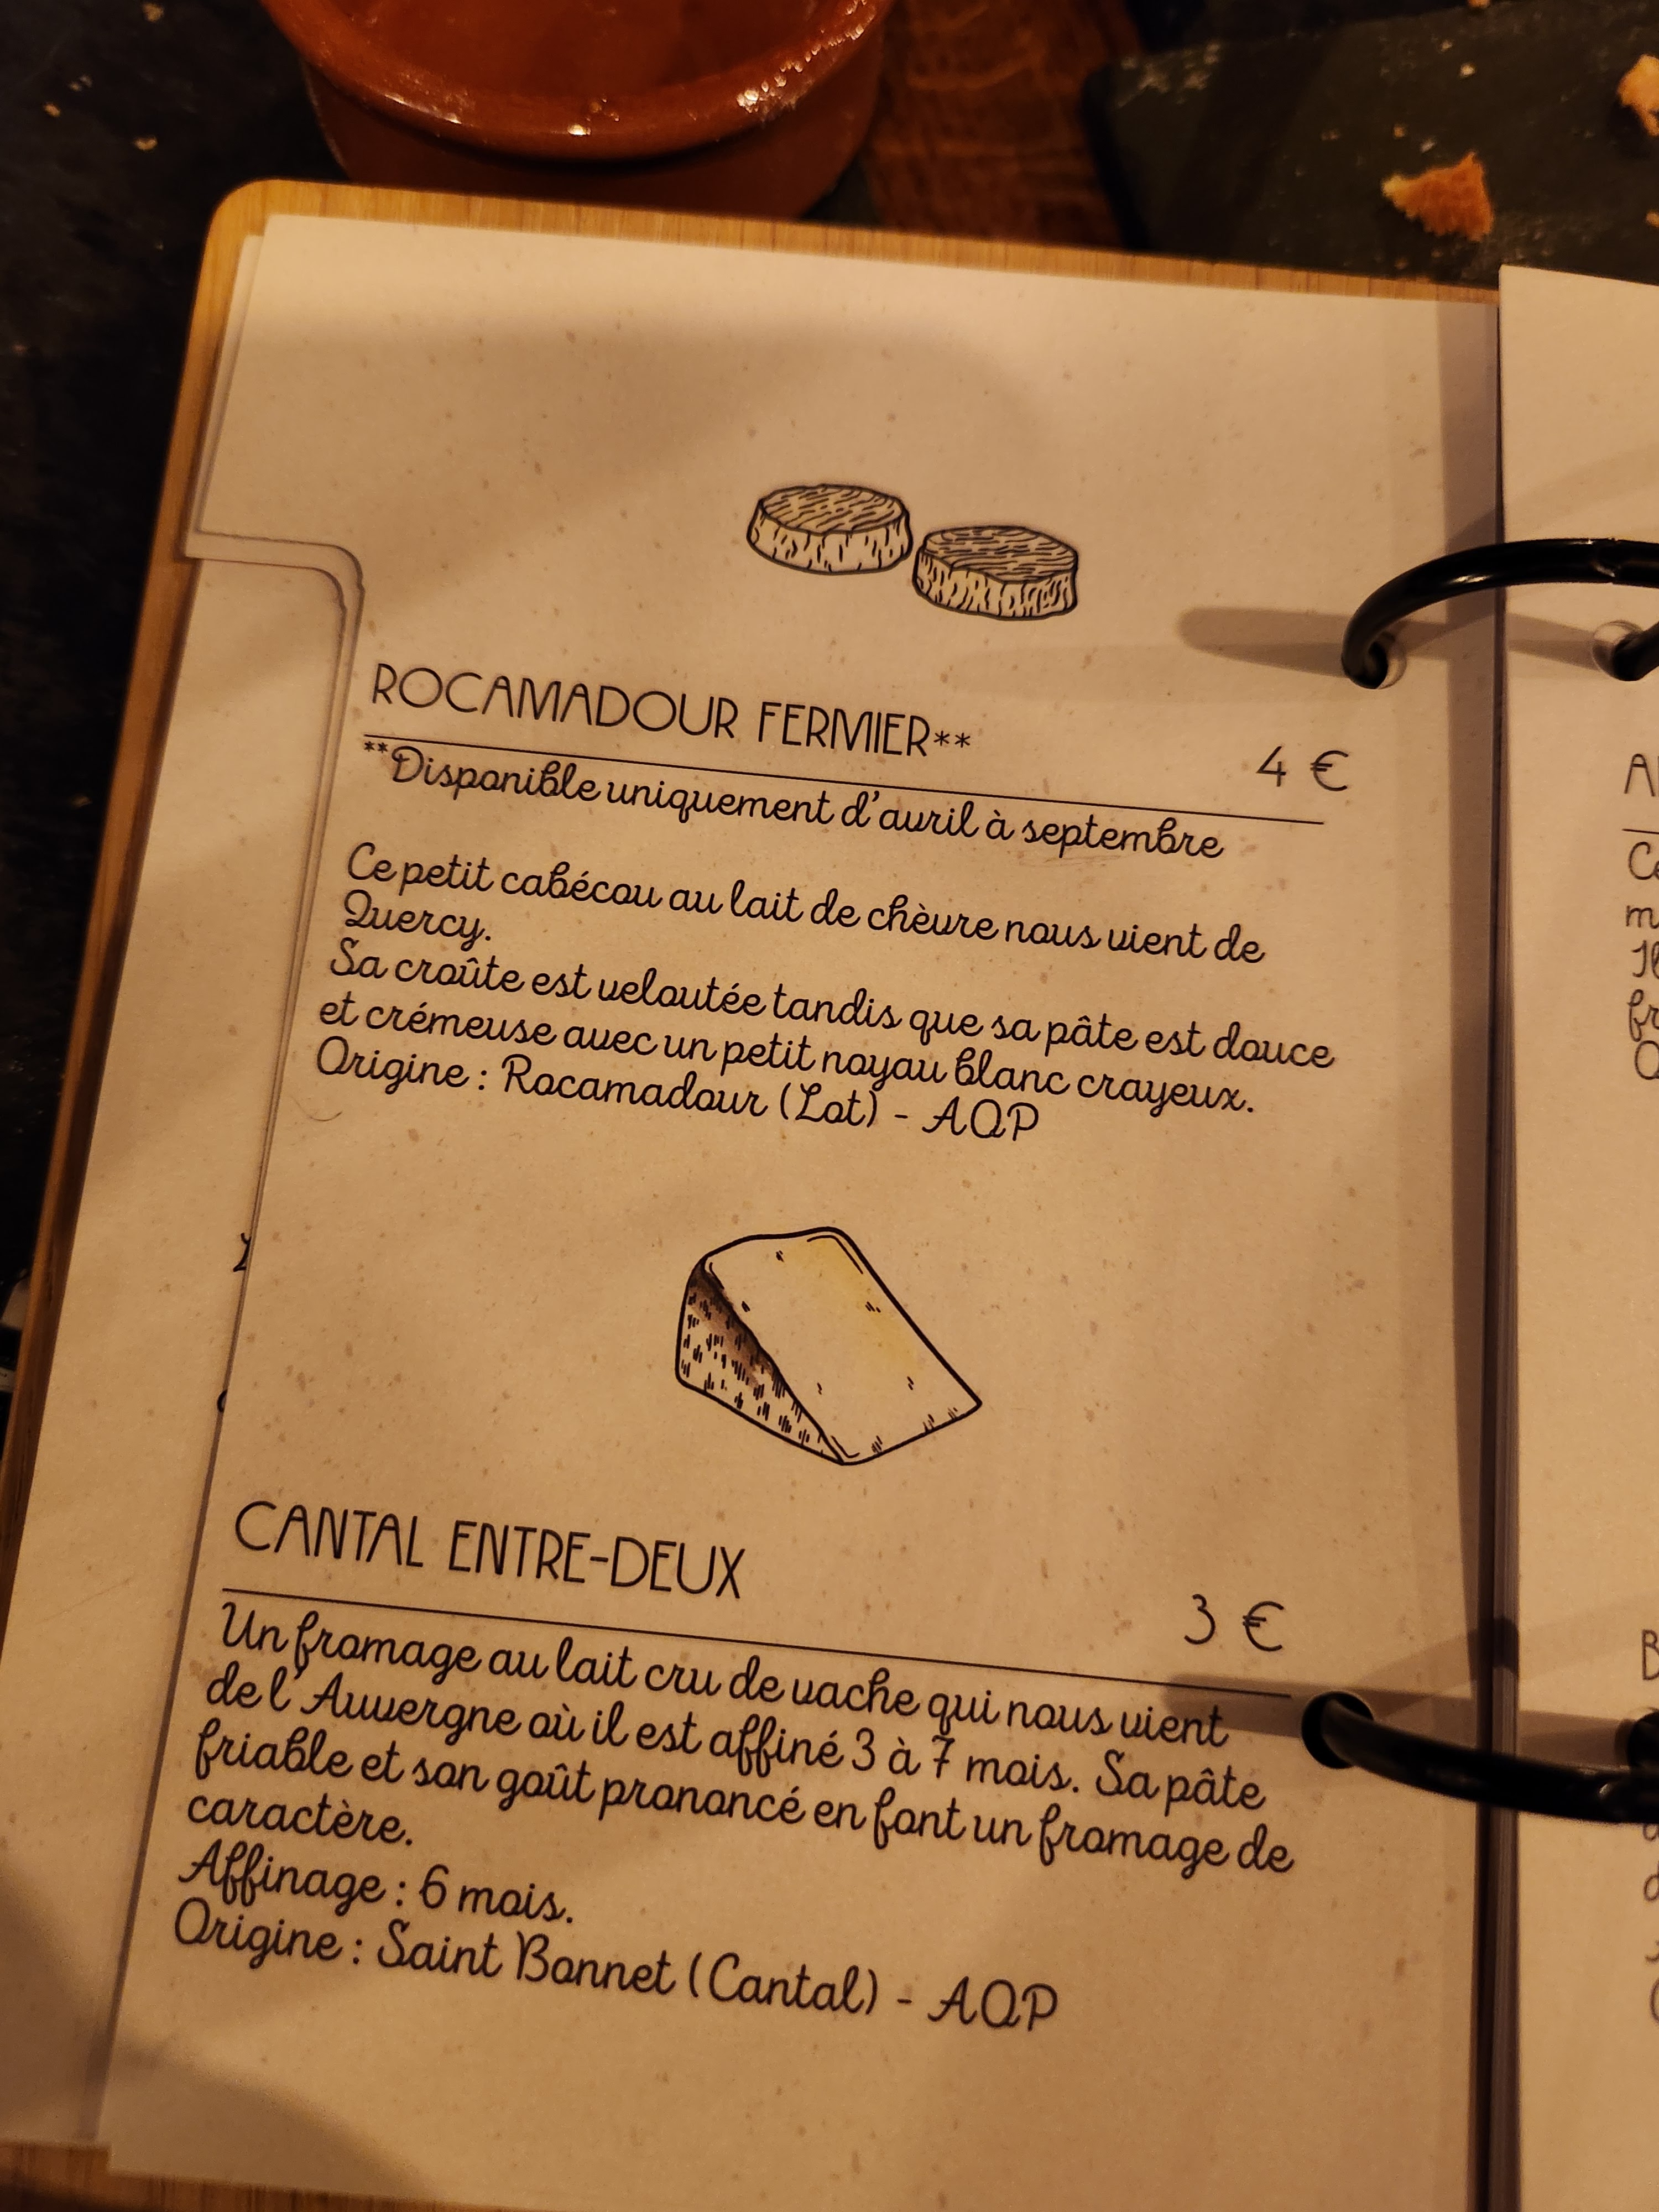 ROCAMADOUR FERMIER**
4 €
**Disponible uniquement d'avril à septembre
Ce petit cabécou au lait de chèvre nous vient de
Quercy.
Sa croûte est veloutée tandis que sa pâte est douce
et crémeuse avec un petit noyau blanc crayeux.
Origine : Rocamadour (Lot) - AOP
CANTAL ENTRE-DEUX
3 €
Un fromage au lait cru de vache qui nous vient
de l'Auvergne où il est affiné 3 à 7 mois. Sa pâte
friable et son goût prononcé en font un fromage de
caractère.
Affinage : 6 mois.
Origine : Saint Bonnet (Cantal) - AOP